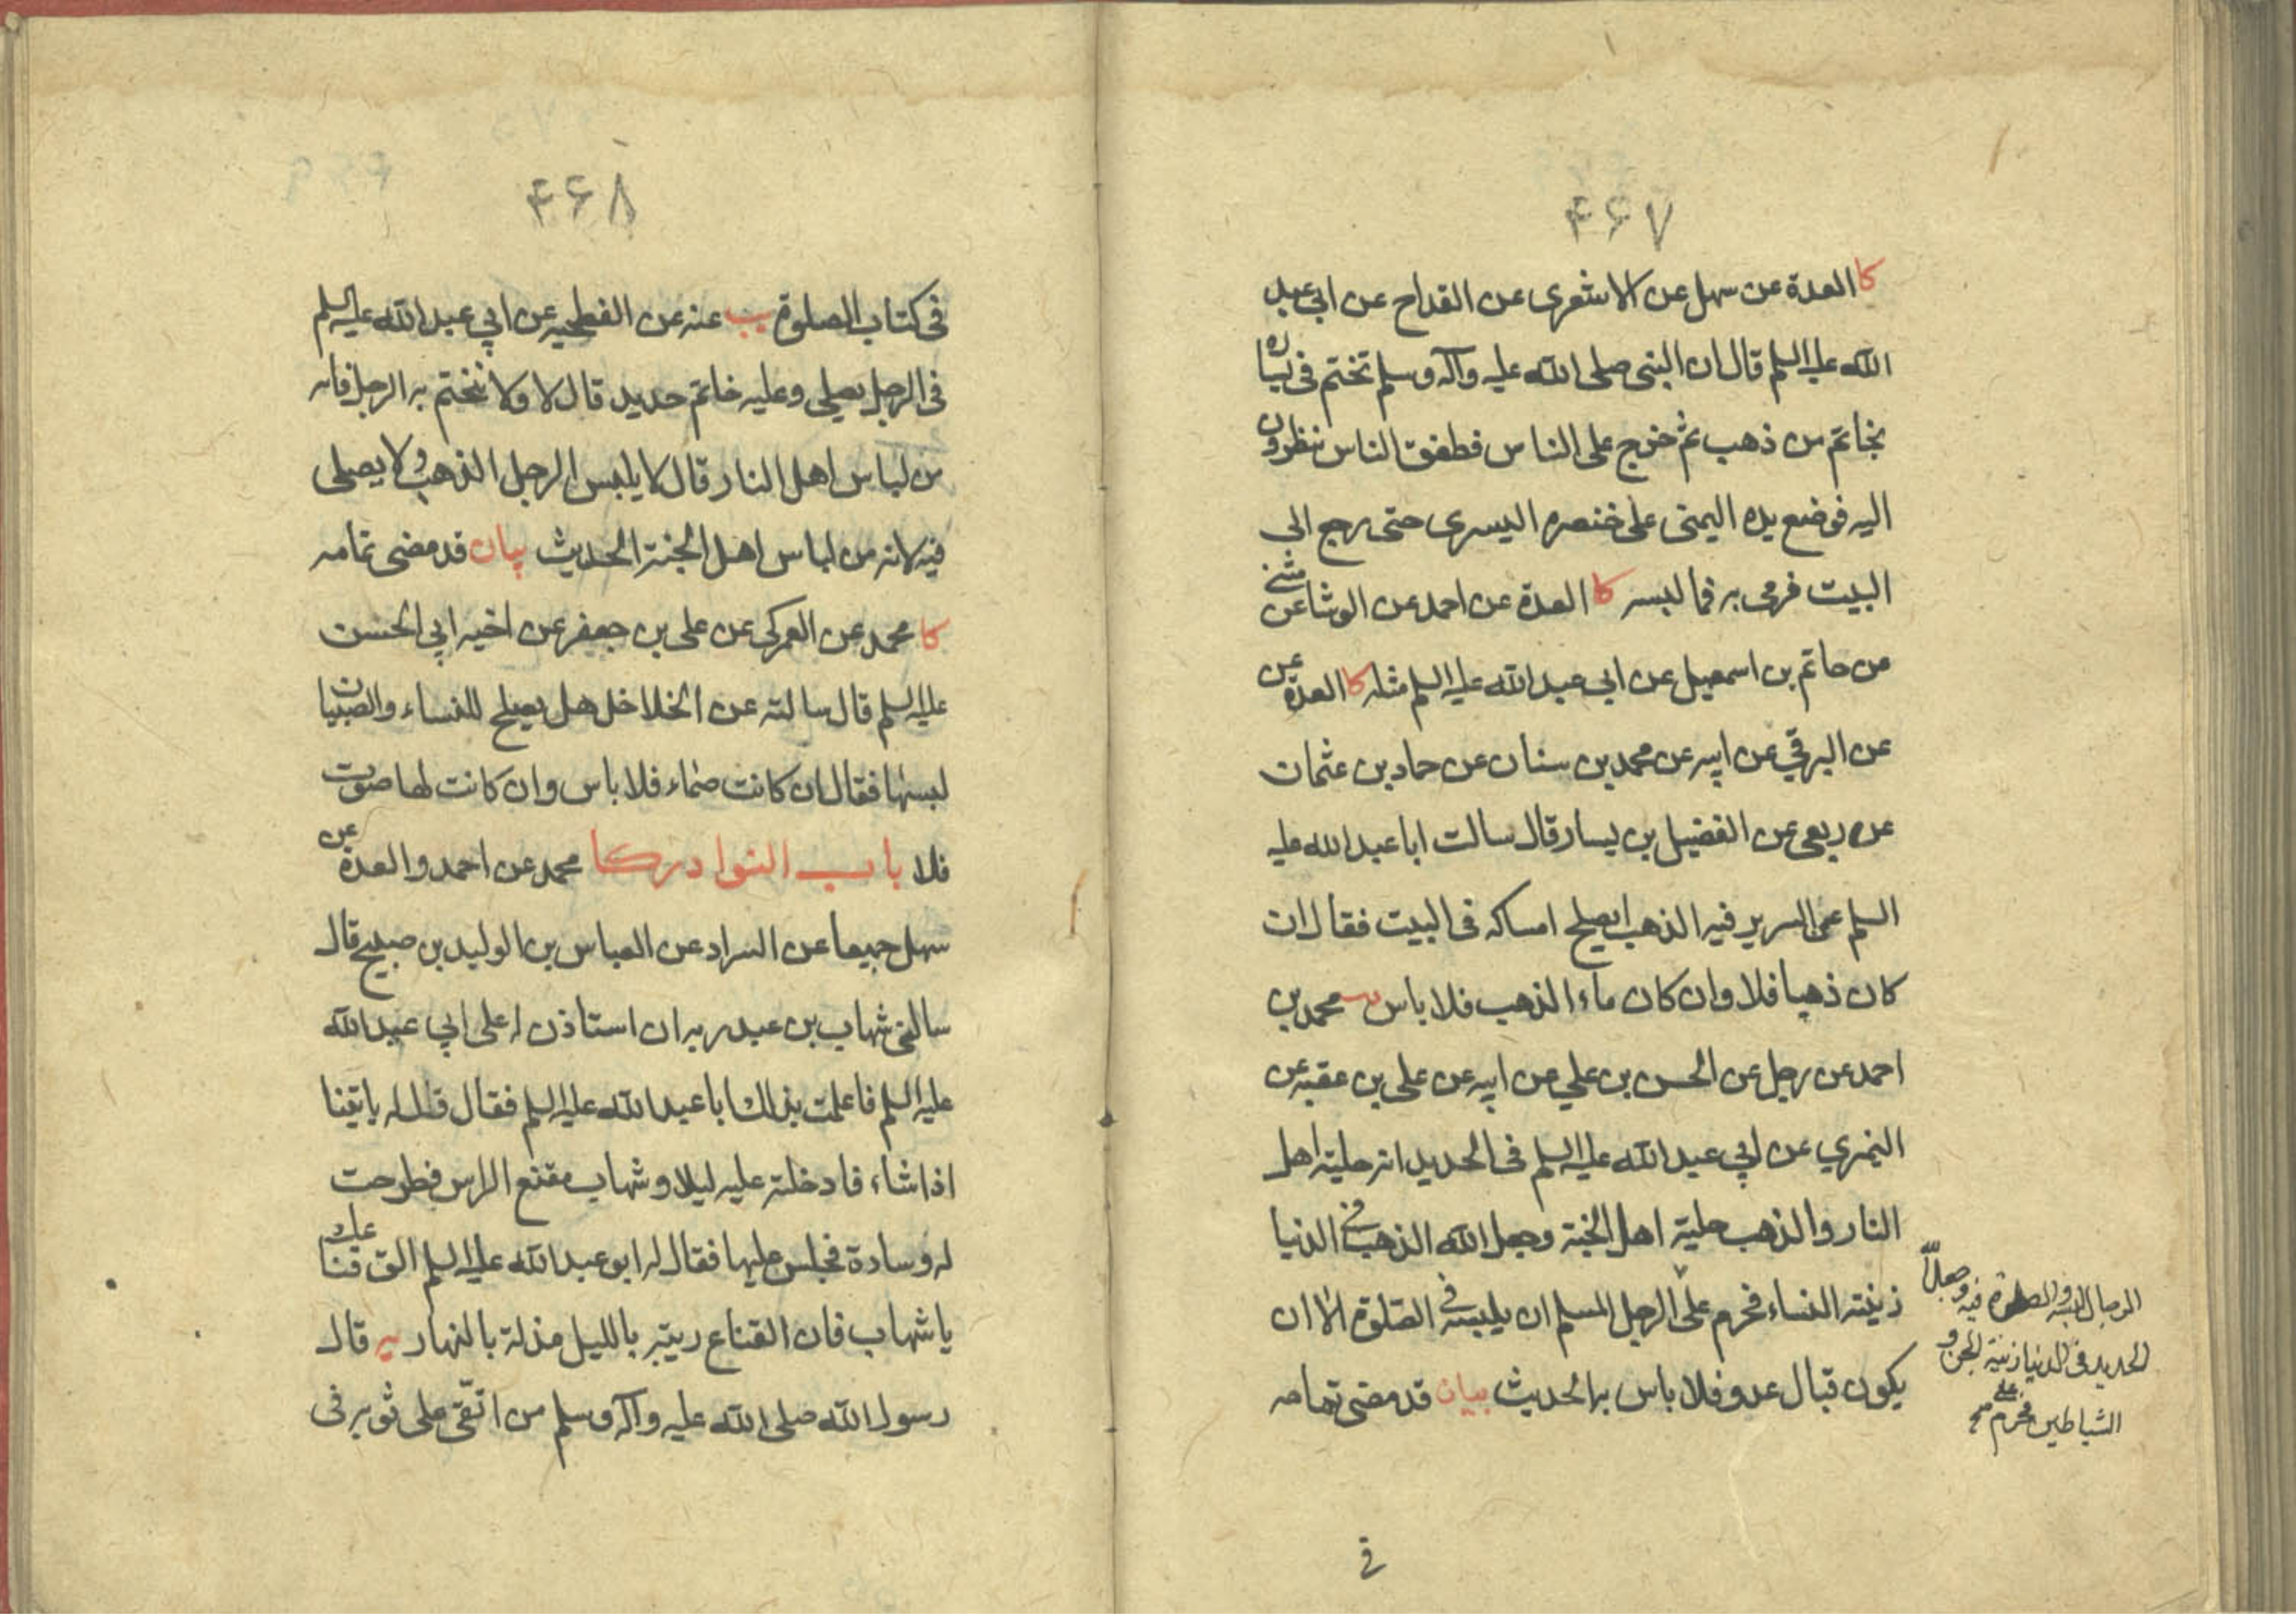 ۴۶۷
كا العدة عن سهل عن الاشعرى عن القداح عن ابى عبد
الله عليه السلم قال ان النبى صلى الله عليه وآله وسلم تختم فى يساره
بخاتم من ذهب ثم خرج على الناس فطفق الناس ينظرون
اليه فوضع يده اليمنى على خنصره اليسرى حتى رجع الى
البيت فرمى به فما لبسه كا العدة عن احمد عن الوشا عن مثنى
عن حاتم بن اسمعيل عن ابى عبد الله عليه السلم مثله كا العدة عن
عن البرقي عن ابيه عن محمد بن سنان عن حماد بن عثمان
عن ربعى عن الفضيل بن يسار قال سالت ابا عبد الله عليه
السلم عن السرير فيه الذهب ايصلح امساكه فى البيت فقال ان
كان ذهبا فلا وان كان ماء الذهب فلا باس يب محمد بن
احمد عن رجل عن الحسن بن علي عن ابيه عن على بن عقبه عن
النميري عن ابي عبد الله عليه السلم فى الحديد انه حلية اهل
النار والذهب حلية اهل الجنة وجعل الله الذهب فى الدنيا
زينة النساء فحرم على الرجل المسلم ان يلبسه فى الصلوة الا ان
يكون قبال عدو فلا باس به الحديث بيان قد مضى تمامه
الرجال لبسه والصلوة فيه وجعل الله
الحديد فى الدنيا زينة الجن و
الشياطين فحرم على صح
فى
۴۶۸
فى كتاب الصلوة يب عنه عن الفطحيه عن ابي عبد الله عليه السلم
فى الرجل يصلى وعليه خاتم حديد قال لا ولا تختم به الرجل فانه
من لباس اهل النار قال لا يلبس الرجل الذهب ولا يصلى
فيه لانه من لباس اهل الجنة الحديث بيان قد مضى تمامه
كا محمد عن العمركى عن على بن جعفر عن اخيه ابي الحسن
عليه السلم قال سالته عن الخلاخل هل يصلح للنساء والصبيان
لبسها فقال ان كانت صماء فلا باس وان كانت لها صوت
فلا باب النوادر كا محمد عن احمد والعدة عن
سهل جميعا عن السراد عن العباس بن الوليد بن صبيح قال
سالنى شهاب بن عبد ربه ان استاذن له على ابي عبد الله
عليه السلم فاعلمت بذلك ابا عبد الله عليه السلم فقال قل له ياتينا
اذا شاء فادخلته عليه ليلا وشهاب مقنع الراس فطرحت
له وسادة فجلس عليها فقال له ابو عبد الله عليه السلم الق قناعك
يا شهاب فان القناع ريبة بالليل مذلة بالنهار يه قال
رسول الله صلى الله عليه وآله وسلم من اتقى على ثوبه فى